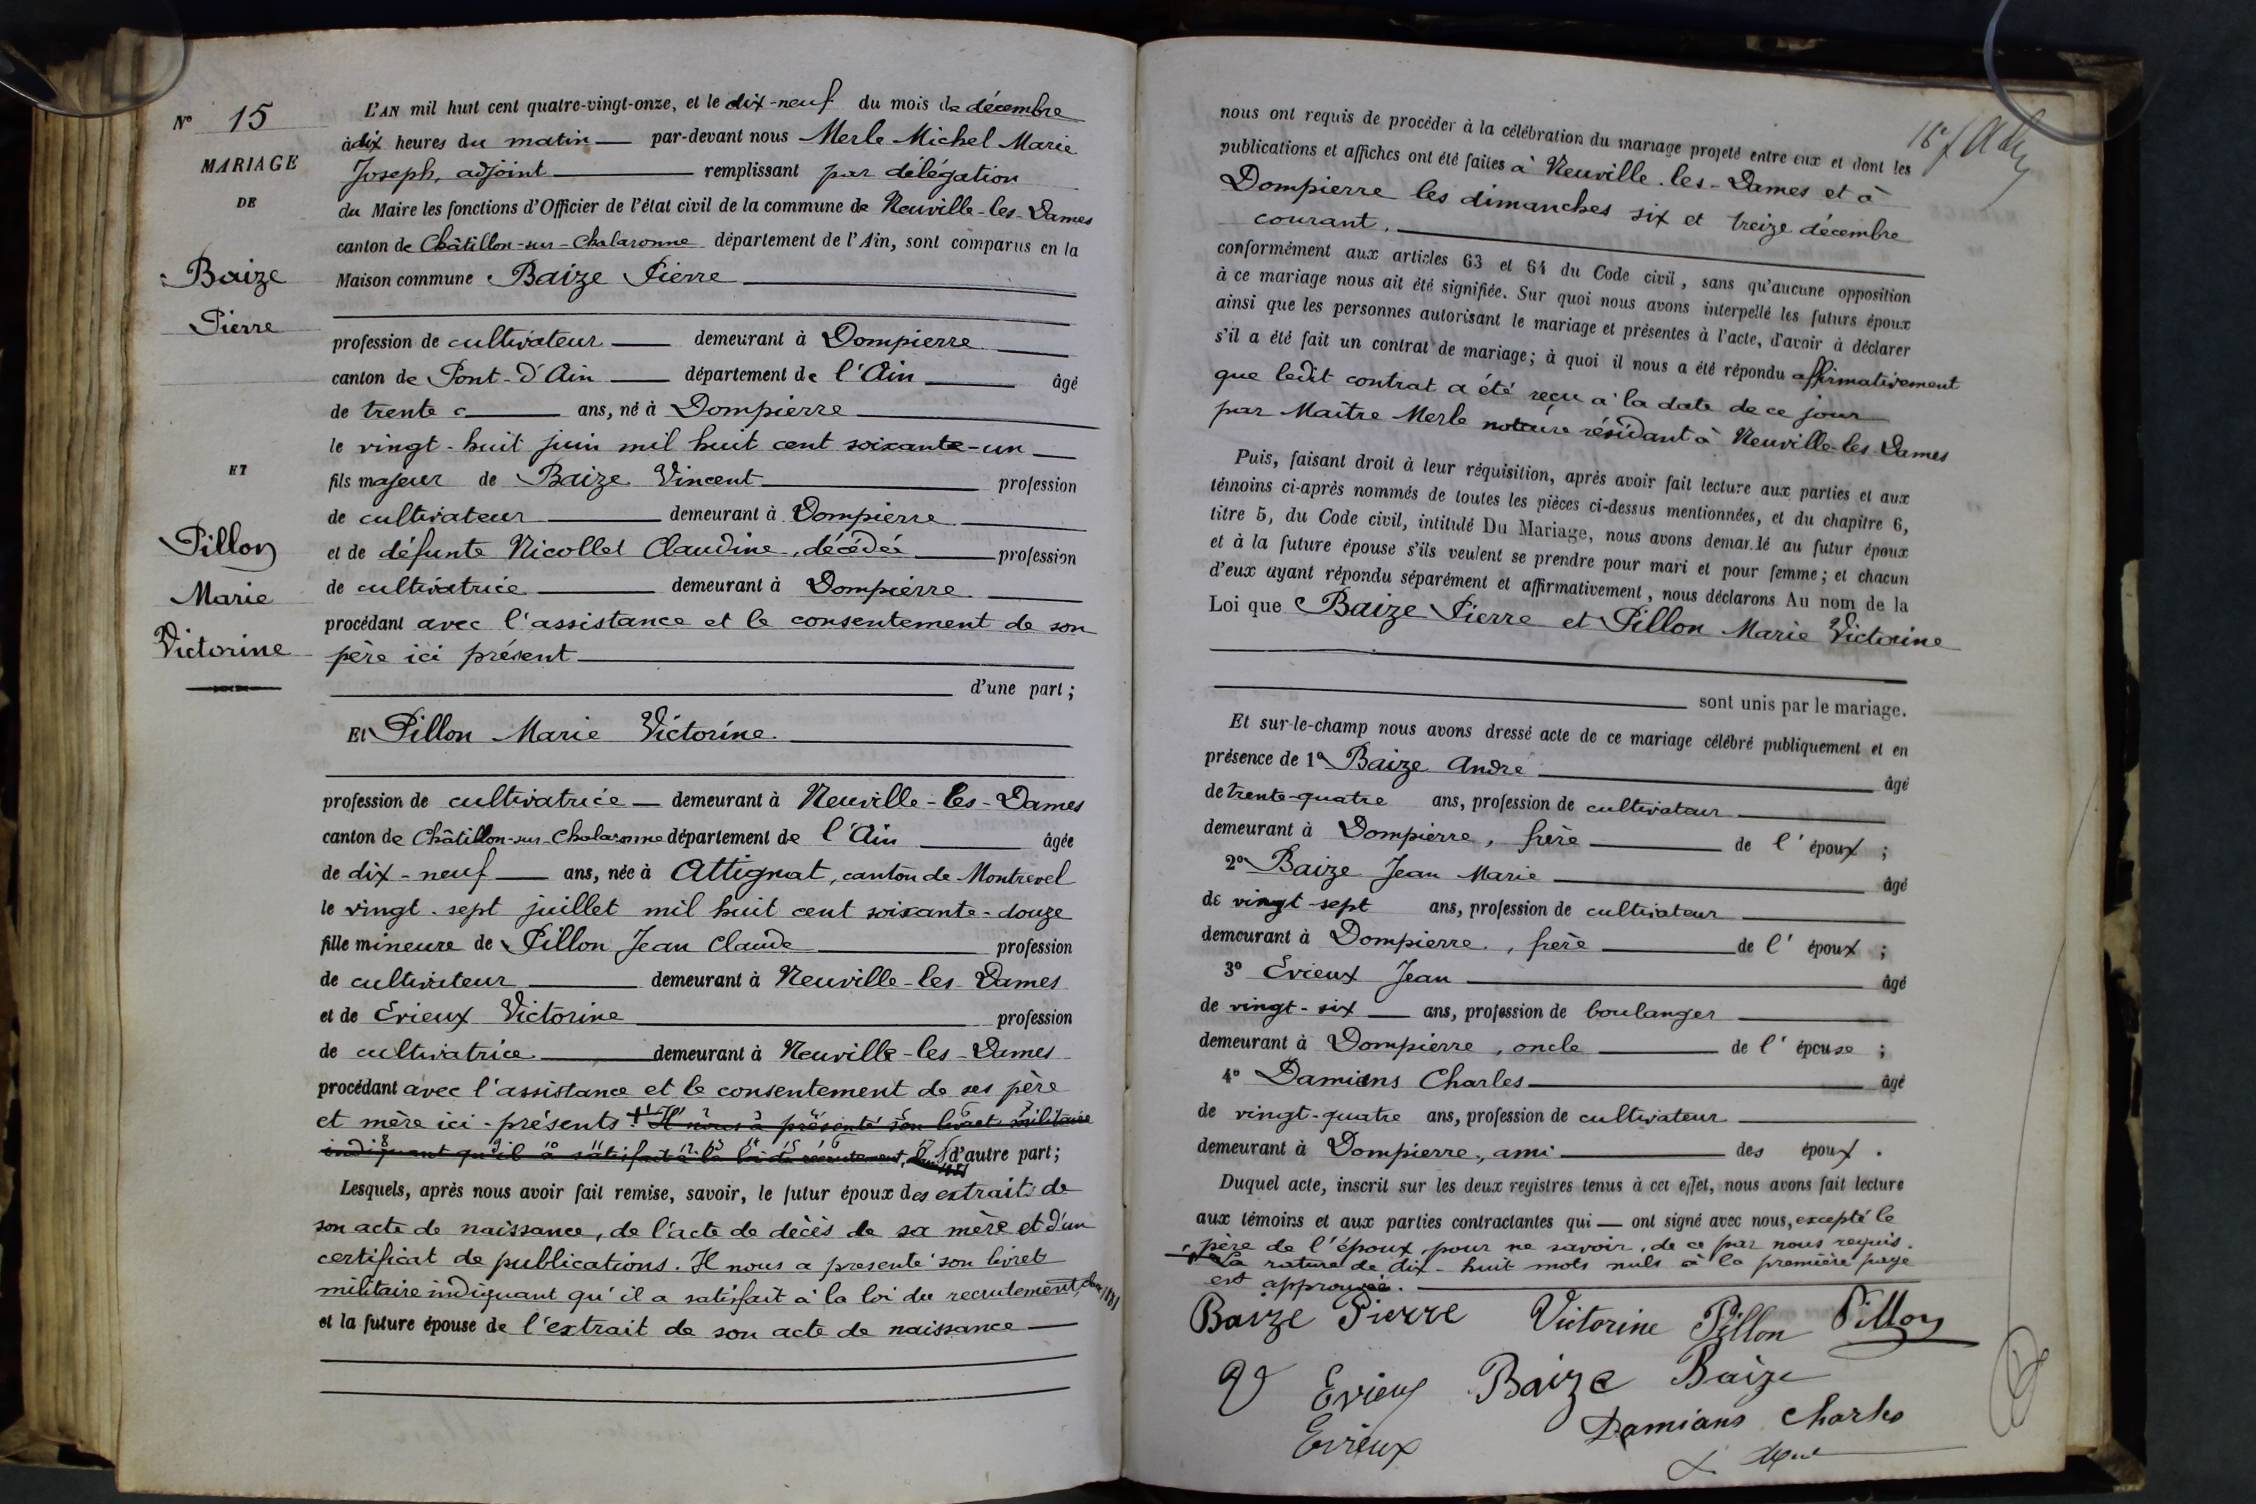 N° 15
MARIAGE
DE
Baize
Pierre
ET
Pillon
Marie
Victorine
L'AN mil huit cent quatre-vingt-onze, et le dix-neuf du mois de décembre
à dix heures du matin — par-devant nous Merle Michel Marie
Joseph, adjoint — remplissant par délégation
du Maire les fonctions d'Officier de l'état civil de la commune de Neuville-les-Dames
canton de Châtillon-sur-Chalaronne département de l'Ain, sont comparus en la
Maison commune Baize Pierre
profession de cultivateur — demeurant à Dompierre
canton de Pont-d'Ain — département de l'Ain — âgé
de trente — ans, né à Dompierre
le vingt-huit juin mil huit cent soixante-un —
fils majeur de Baize Vincent — profession
de cultivateur — demeurant à Dompierre
et de défunte Nicollet Claudine, décédée — profession
de cultivatrice — demeurant à Dompierre
procédant avec l'assistance et le consentement de son
père ici présent
d'une part ;
Et Pillon Marie Victorine
profession de cultivatrice — demeurant à Neuville-les-Dames
canton de Châtillon-sur-Chalaronne département de l'Ain — âgée
de dix-neuf — ans, née à Attignat, canton de Montrevel
le vingt-sept juillet mil huit cent soixante-douze
fille mineure de Pillon Jean Claude — profession
de cultivateur — demeurant à Neuville-les-Dames
et de Evieux Victorine — profession
de cultivatrice — demeurant à Neuville-les-Dames
procédant avec l'assistance et le consentement de ses père
et mère ici-présents. Il nous a présenté son livret militaire
indiquant qu'il a satisfait à la loi du recrutement, d'autre part ;
Lesquels, après nous avoir fait remise, savoir, le futur époux des extraits de
son acte de naissance, de l'acte de décès de sa mère et d'un
certificat de publications. Il nous a présenté son livret
militaire indiquant qu'il a satisfait à la loi du recrutement,
et la future épouse de l'extrait de son acte de naissance —
nous ont requis de procéder à la célébration du mariage projeté entre eux et dont les
publications et affiches ont été faites à Neuville-les-Dames et à
Dompierre les dimanches six et treize décembre
courant.
conformément aux articles 63 et 64 du Code civil, sans qu'aucune opposition
à ce mariage nous ait été signifiée. Sur quoi nous avons interpellé les futurs époux
ainsi que les personnes autorisant le mariage et présentes à l'acte, d'avoir à déclarer
s'il a été fait un contrat de mariage; à quoi il nous a été répondu affirmativement
que ledit contrat a été reçu à la date de ce jour
par Maître Merle notaire résidant à Neuville-les-Dames
Puis, faisant droit à leur réquisition, après avoir fait lecture aux parties et aux
témoins ci-après nommés de toutes les pièces ci-dessus mentionnées, et du chapitre 6,
titre 5, du Code civil, intitulé Du Mariage, nous avons demandé au futur époux
et à la future épouse s'ils veulent se prendre pour mari et pour femme; et chacun
d'eux ayant répondu séparément et affirmativement, nous déclarons Au nom de la
Loi que Baize Pierre et Pillon Marie Victorine
sont unis par le mariage.
Et sur-le-champ nous avons dressé acte de ce mariage célébré publiquement et en
présence de 1° Baize André — âgé
de trente-quatre ans, profession de cultivateur
demeurant à Dompierre, frère — de l'époux ;
2° Baize Jean Marie — âgé
de vingt-sept ans, profession de cultivateur
demeurant à Dompierre, frère — de l'époux ;
3° Evieux Jean — âgé
de vingt-six — ans, profession de boulanger
demeurant à Dompierre, oncle — de l'épouse ;
4° Damians Charles — âgé
de vingt-quatre ans, profession de cultivateur
demeurant à Dompierre, ami — des époux.
Duquel acte, inscrit sur les deux registres tenus à cet effet, nous avons fait lecture
aux témoins et aux parties contractantes qui — ont signé avec nous, excepté le
père de l'époux pour ne savoir, de ce par nous requis.
La rature de dix-huit mots nuls à la première page
est approuvée.
Baize Pierre Victorine Pillon Pillon
V Evieux Baize Baize
Evieux Damians Charles